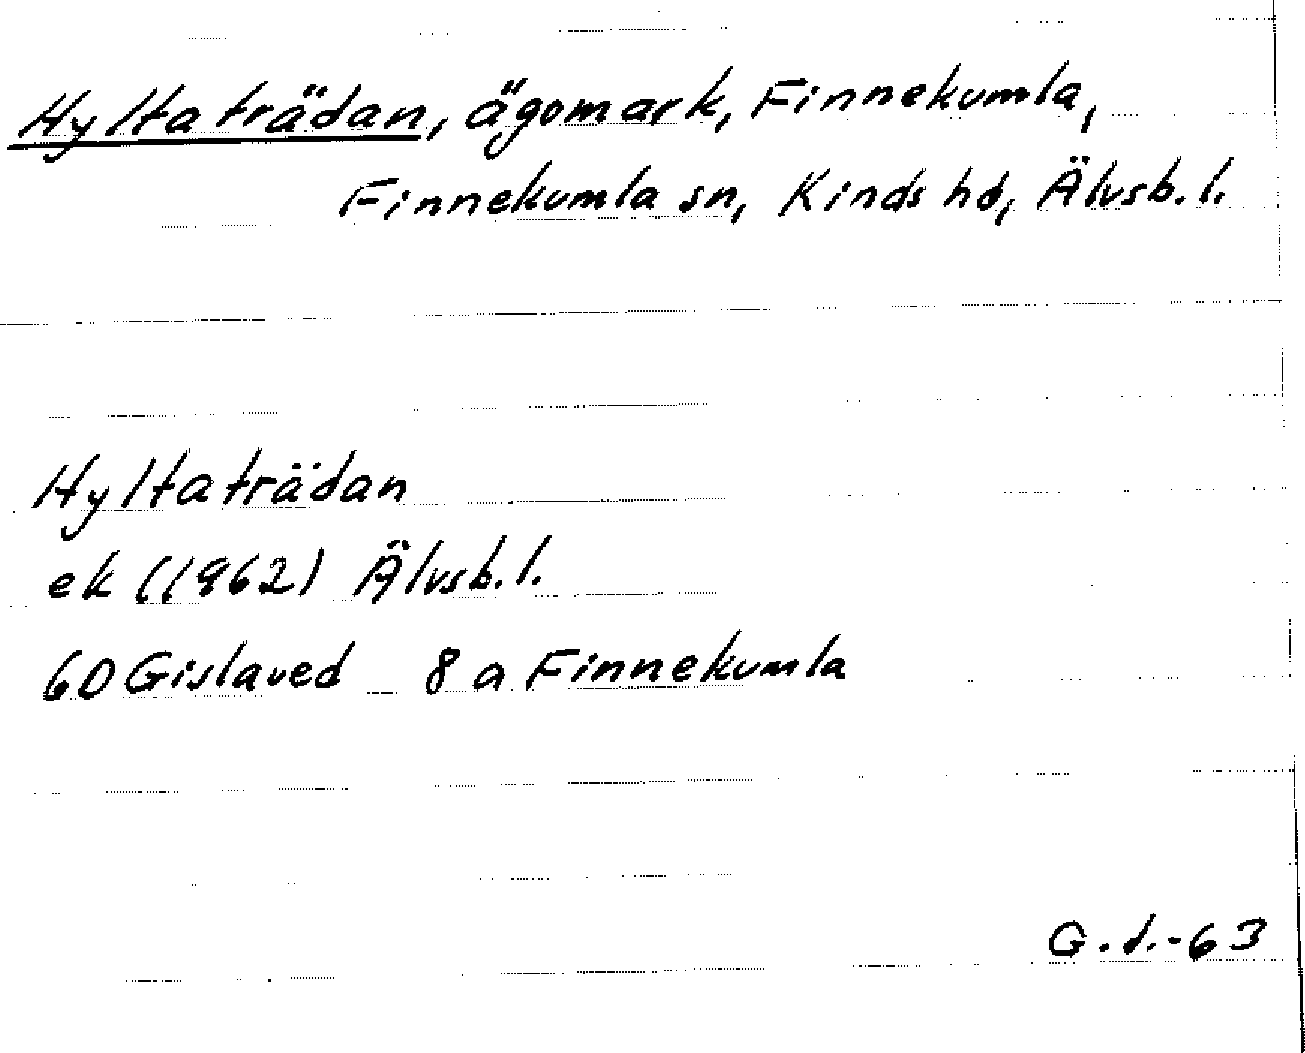 Hyltaträdan, ägomark, Finnekumla,
Finnekumla sn, Kinds hd, Älvsb. l.
Hyltaträdan
ek (1962) Älvsb. l.
60 Gislaved 8 a Finnekumla
G. d. -63